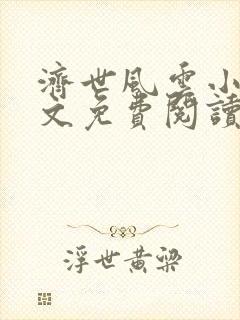 濟世風雲小
文免費閱讀
浮世黃梁